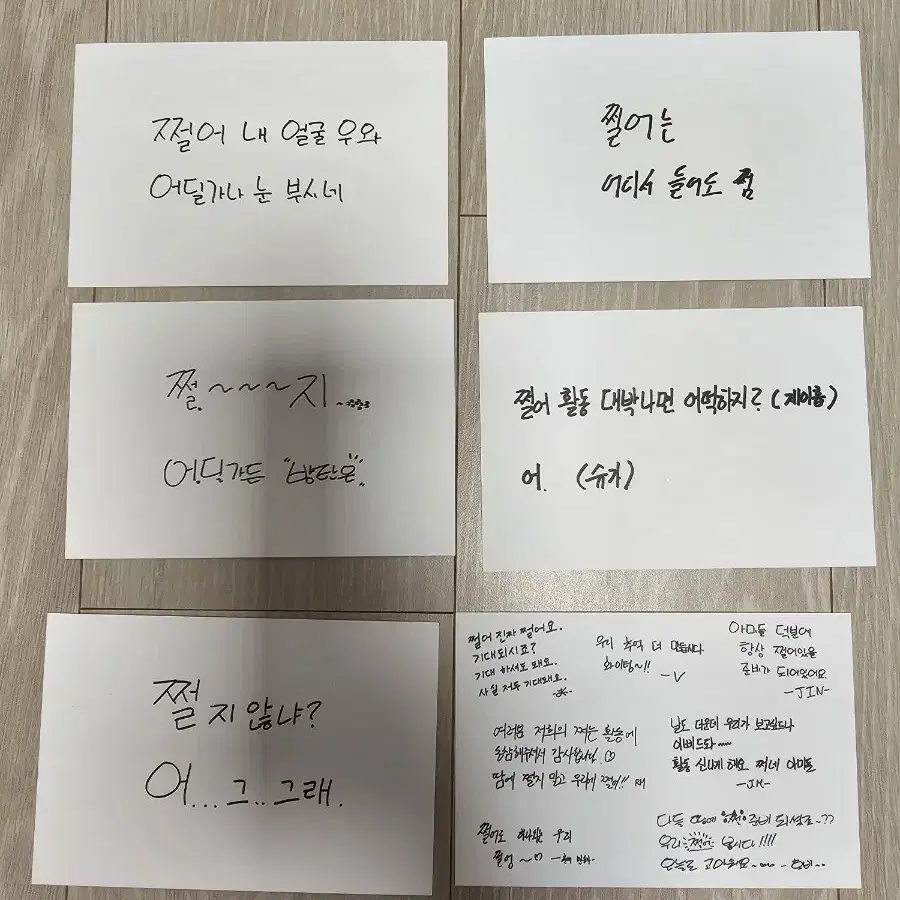 쩔어 내 얼굴 우와
어딜가나 눈 부시네
쩔어는
어디서 들어도 쩜
쩔~~~지~
어딜가든 "방탄은"
쩔어 활동 대박나면 어떡하지? (제이홉)
어. (슈가)
쩔지않냐?
어... 그.. 그래.
쩔어 진짜 쩔어요.
기대되시죠?
기대 하셔도 돼요.
사실 저두 기대돼요.
우리 추억 더 만듭시다
화이팅~!!
-V
아미들 덕분에
항상 쩔어있을
준비가 되어있어요
-JIN-
여러분 저희의 쩌는 활동에
동참해주셔서 감사합니다
땀에 쩔지 말고 우리에 쩔어!!
날도 더운데 우리가 보고싶드나
이쁘드와~~
활동 신나게 해요 쩌네 아미들
-JK-
쩔어도 우리
쩔엉~
다들 땀에 준비 되셨죠~??
우리 쩔어 봅시다!!!!
오늘도 고마워요~ - 호비~